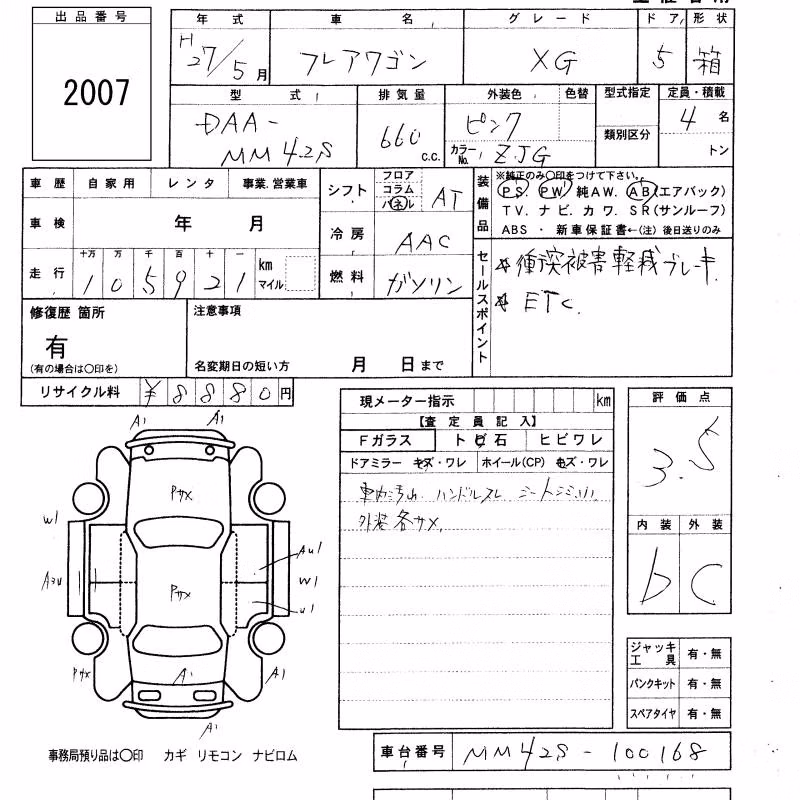 出品番号
2007
年式 車名 グレード ドア 形状
H27/5月 フレアワゴン XG 5 箱
型式 排気量 外装色 色替 型式指定 定員・積載
DAA-MM42S 660 c.c. ピンク 類別区分 4名
カラーNo. ZJG トン
車歴 自家用 レンタ 事業.営業車
車検 年 月
走行 十万 万 千 百 十 一 km マイル
105921
シフト フロア コラム パネル AT
冷房 AAC
燃料 ガソリン
装備品
※純正のみ〇印をつけて下さい。
PS PW 純AW. AB(エアバック)
TV. ナビ. カワ. SR(サンルーフ)
ABS ・ 新車保証書←(注) 後日送りのみ
セールスポイント
衝突被害軽減ブレーキ
ETC.
修復歴 箇所
有
(有の場合は〇印を)
注意事項
名変期日の短い方 月 日まで
リサイクル料 ¥8880円
現メーター指示 km
【査定員記入】
Fガラス トビ石 ヒビワレ
ドアミラー キズ・ワレ ホイール(CP) キズ・ワレ
車内汚れ ハンドルスレ シートシミ
外装各サメ
評価点
3.5
内装 外装
b C
ジャッキ工具 有・無
パンクキット 有・無
スペアタイヤ 有・無
A1 A1
Pサメ
W1
AU1
Pサメ
W1
U1
Pサメ
A1
A1
A1
事務局預り品は〇印 カギ リモコン ナビロム
車台番号 MM42S-100168